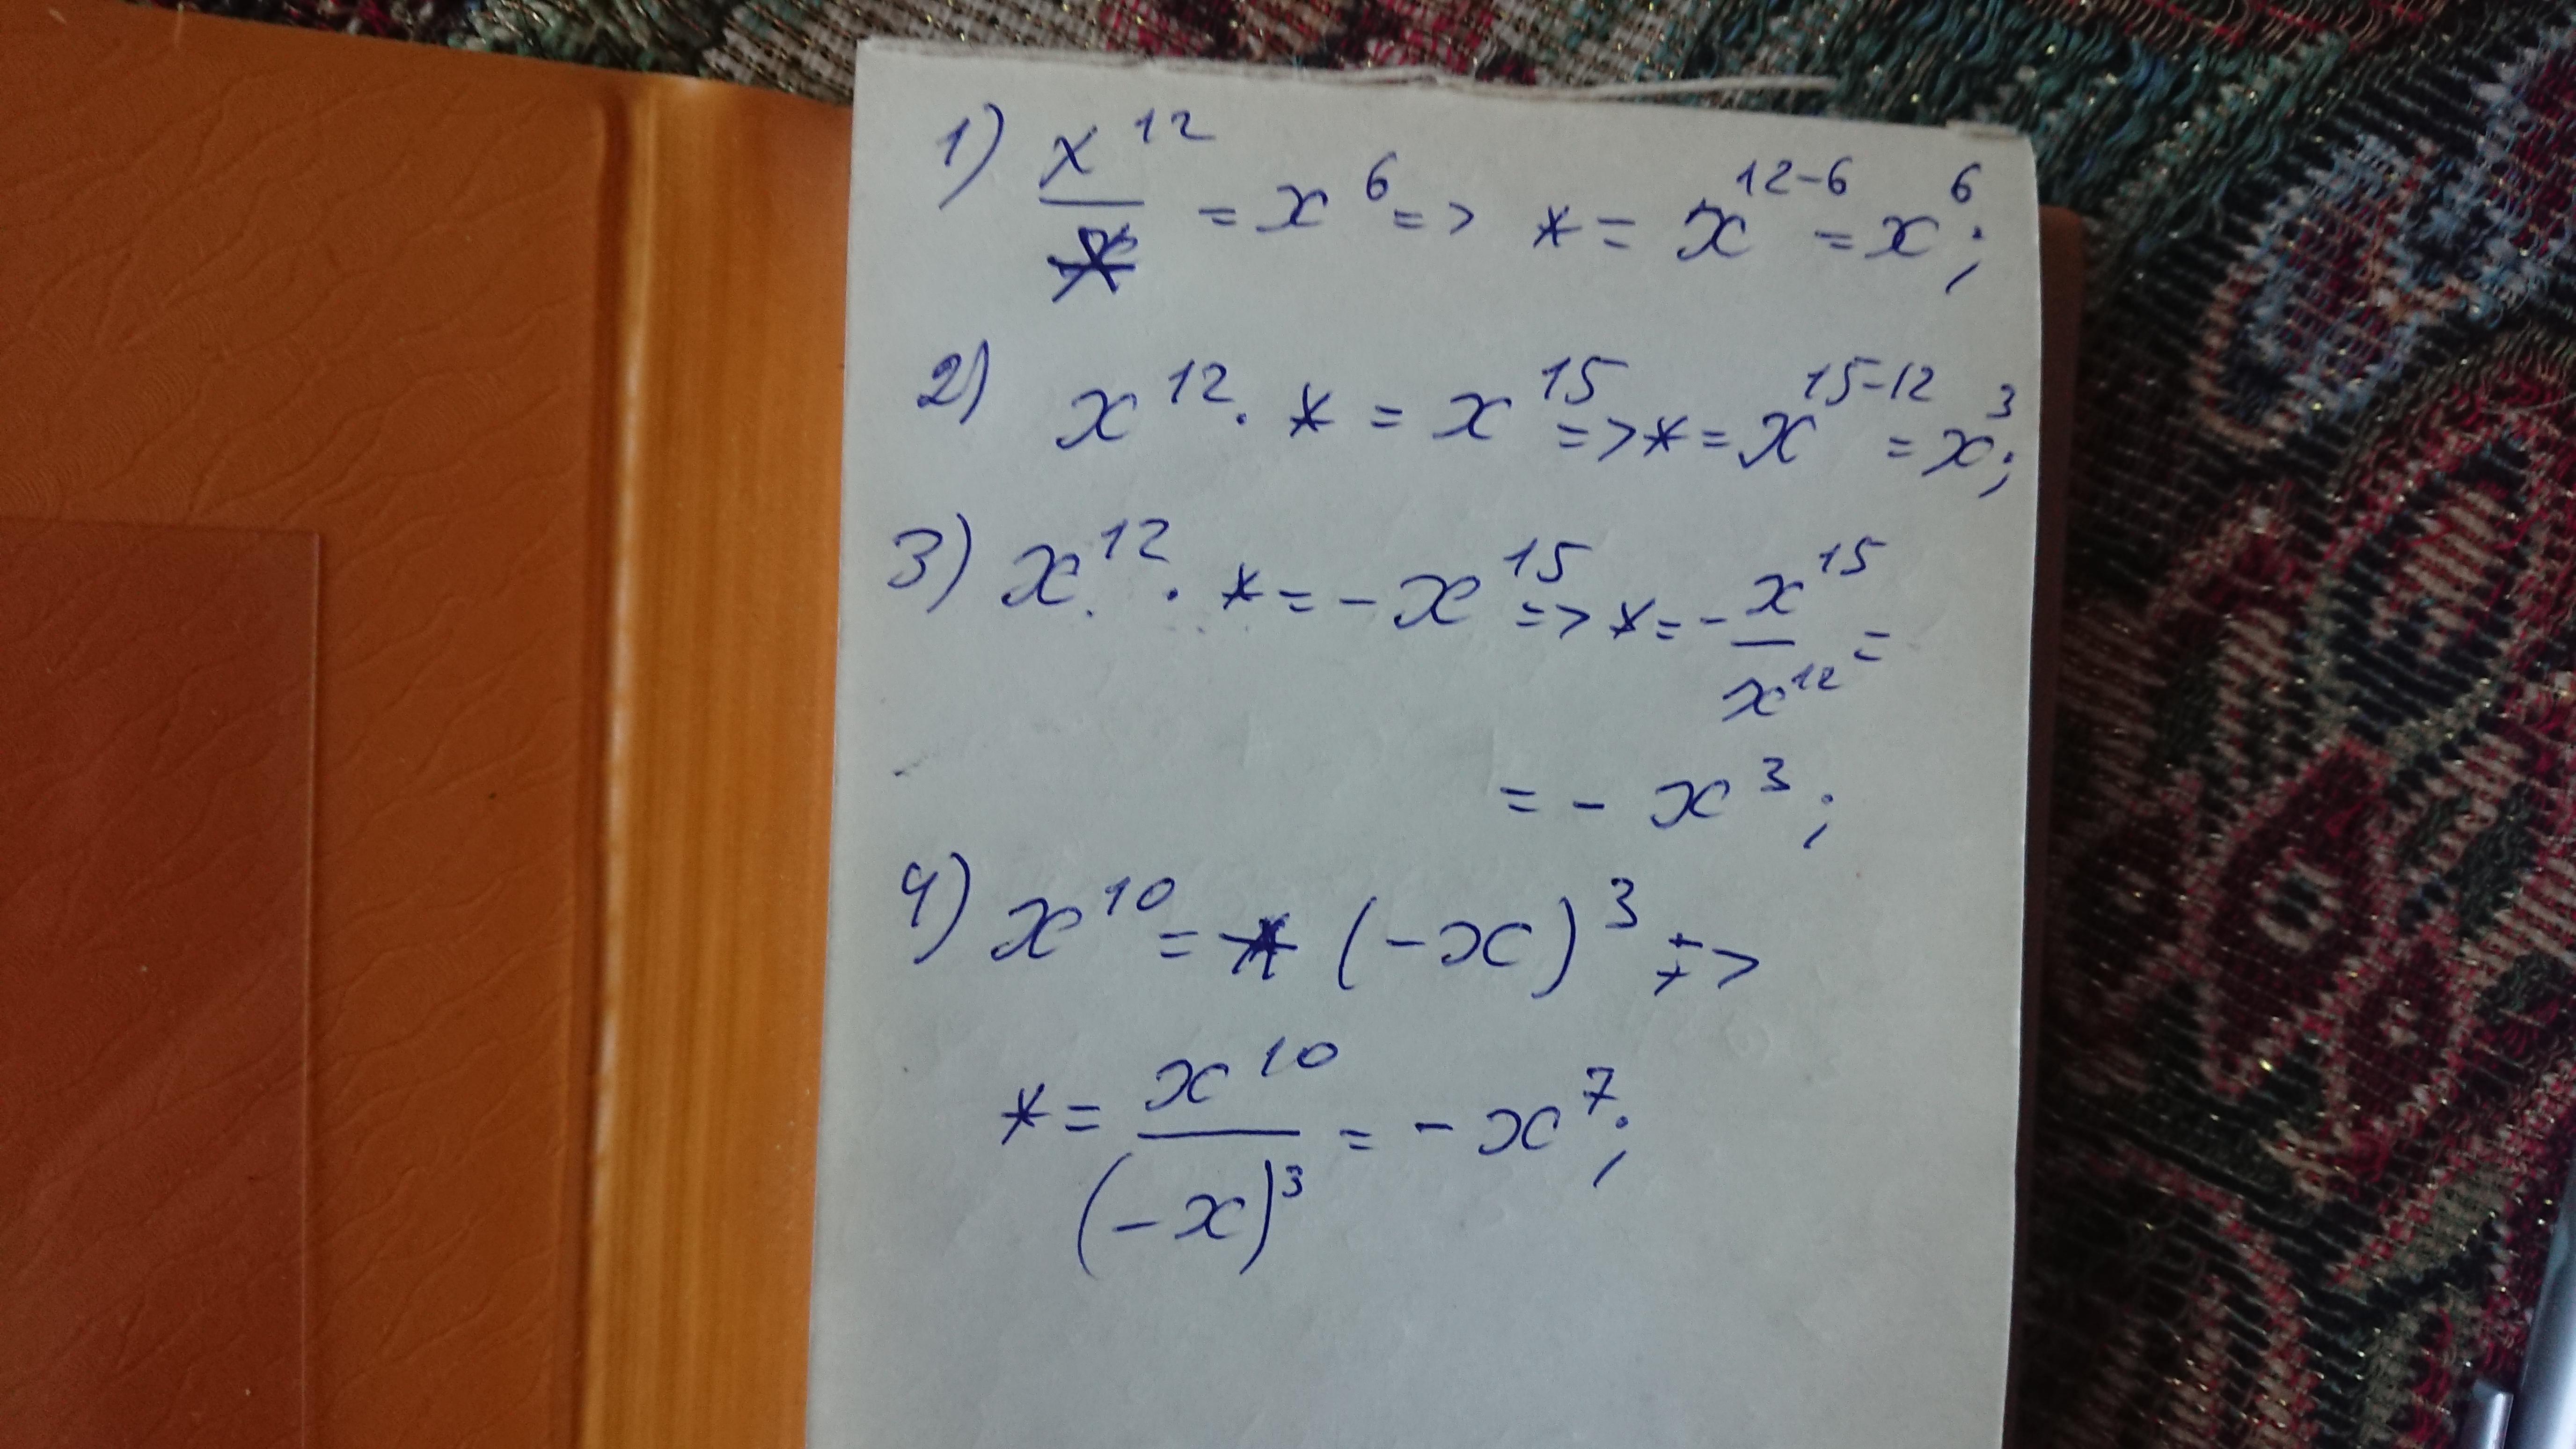 1) x^12 / * = x^6 => * = x^(12-6) = x^6;
2) x^12 · * = x^15 => * = x^(15-12) = x^3;
3) x^12 · * = -x^15 => * = - x^15 / x^12 =
= - x^3;
4) x^10 = * (-x)^3 =>
* = x^10 / (-x)^3 = - x^7;